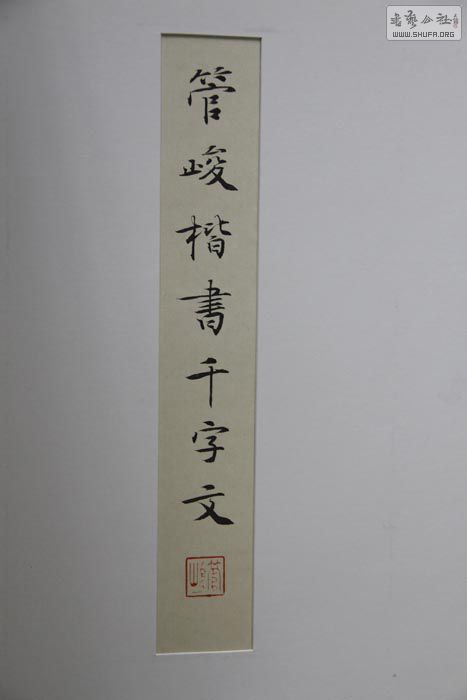 书艺公社
WWW.SHUFA.ORG
管峻楷書千字文
管峻